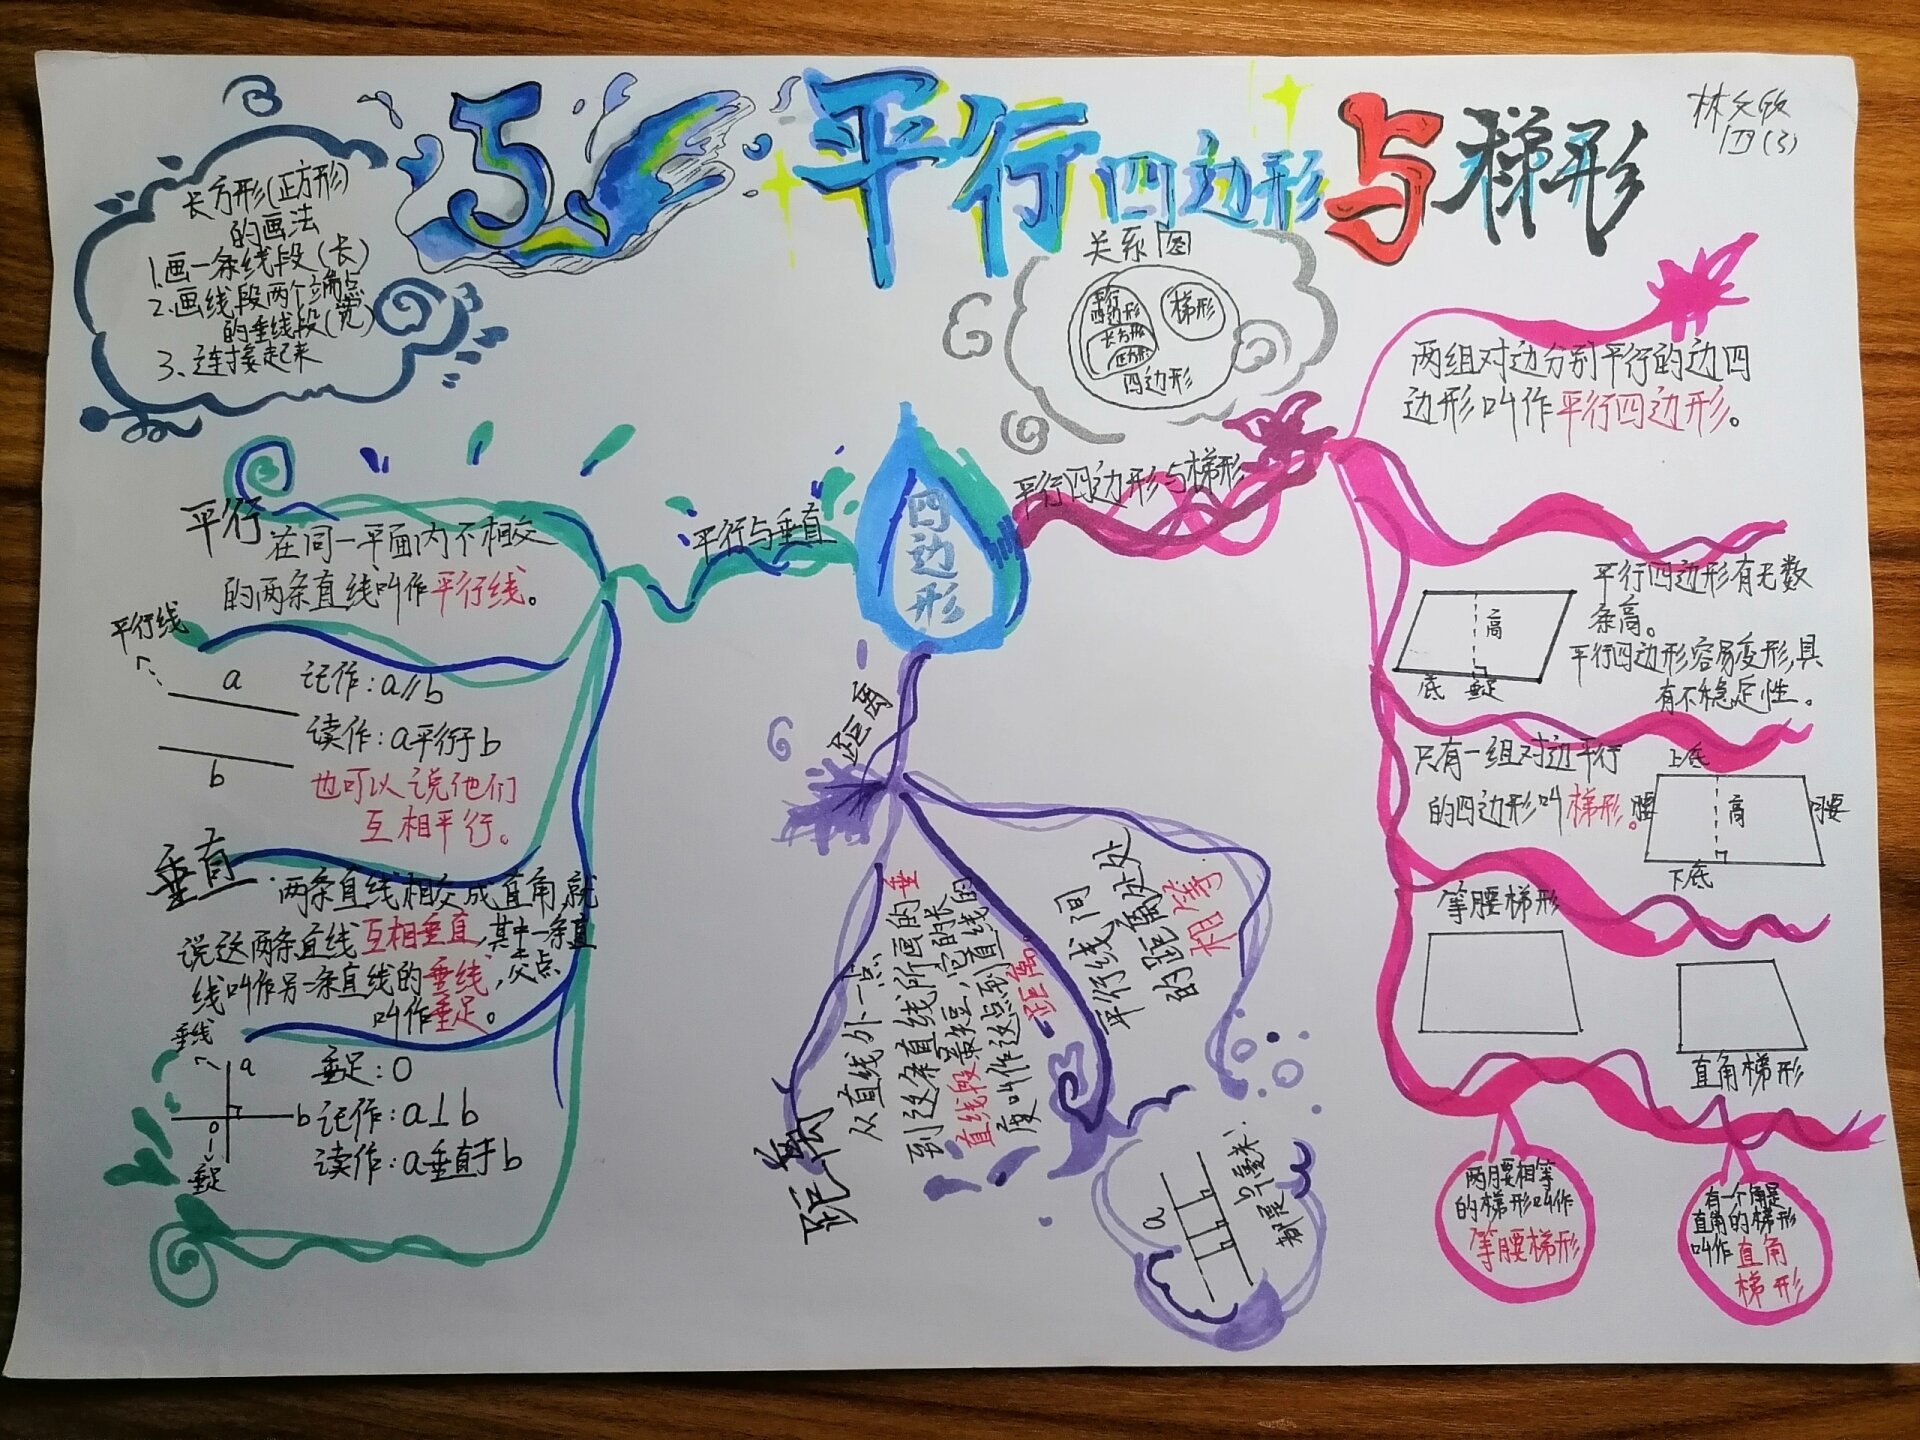 5.平行四边形与梯形
林文欣
四(3)
长方形(正方形)
的画法
1.画一条线段(长)
2.画线段两个端点
的垂线段(宽)
3.连接起来
关系图
平行
四边形
长方形
正方形
梯形
四边形
四边形
平行与垂直
平行
在同一平面内不相交
的两条直线叫作平行线。
平行线
a
b
记作:a∥b
读作:a平行于b
也可以说他们
互相平行。
垂直
两条直线相交成直角,就
说这两条直线互相垂直,其中一条直
线叫作另一条直线的垂线,交点
叫作垂足。
垂线
a
b
o
垂足
垂足:O
记作:a⊥b
读作:a垂直于b
距离
距离
从直线外一点
到这条直线所画的垂
直线段最短,它的长
度叫作这点到直线的
距离。
平行线间
的距离处处
相等
a
都是1厘米!
平行四边形与梯形
两组对边分别平行的边四
边形叫作平行四边形。
高
底
垂足
平行四边形有无数
条高。
平行四边形容易变形,具
有不稳定性。
只有一组对边平行
的四边形叫梯形。
上底
腰
高
腰
下底
等腰梯形
直角梯形
两腰相等
的梯形叫作
等腰梯形
有一个角是
直角的梯形
叫作直角
梯形